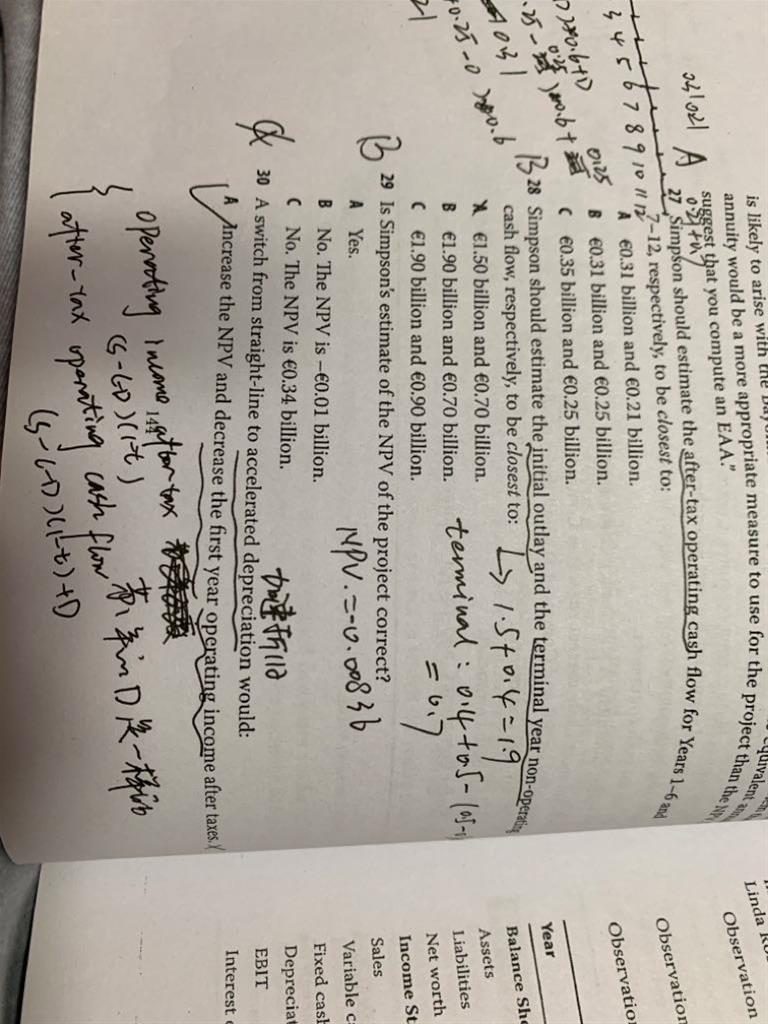 is likely to arise with the
annuity would be a more appropriate measure to use for the project than the
suggest that you compute an EAA."
031021 A
27 Simpson should estimate the after-tax operating cash flow for Years 1–6 and
7–12, respectively, to be closest to:
A €0.31 billion and €0.21 billion.
B €0.31 billion and €0.25 billion.
C €0.35 billion and €0.25 billion.
3 4 5 6 7 8 9 10 11 12
0.25
B
28 Simpson should estimate the initial outlay and the terminal year non-operating
cash flow, respectively, to be closest to:
↳ 1.5+0.4=1.9
A €1.50 billion and €0.70 billion.
B €1.90 billion and €0.70 billion.
C €1.90 billion and €0.90 billion.
terminal: 0.4+0.5-
=0.7
B
29 Is Simpson's estimate of the NPV of the project correct?
A Yes.
B No. The NPV is −€0.01 billion.
C No. The NPV is €0.34 billion.
NPV.=-0.00836
30 A switch from straight-line to accelerated depreciation would:
加速折旧
A Increase the NPV and decrease the first year operating income after taxes.
144
operating income after-tax
(S-C-D)(1-t)
after-tax operating cash flow
(S-C-D)(1-t)+D
Linda
Observation
Observation
Observation
Year
Balance
Assets
Liabilities
Net worth
Income
Sales
Variable
Fixed
EBIT
Interest